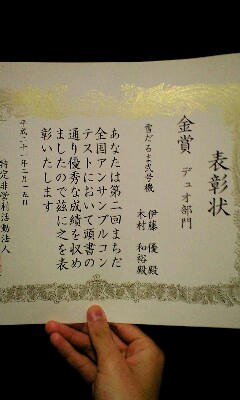 表彰状
金賞 デュオ部門
雪だるま弐号機 伊藤 優殿
木村 和裕殿
あなたは第二回まちだ
全国アンサンブルコン
テストにおいて頭書の
通り優秀な成績を収め
ましたので茲に之を表
彰いたします
平成二十一年二月一五日
特定非営利活動法人